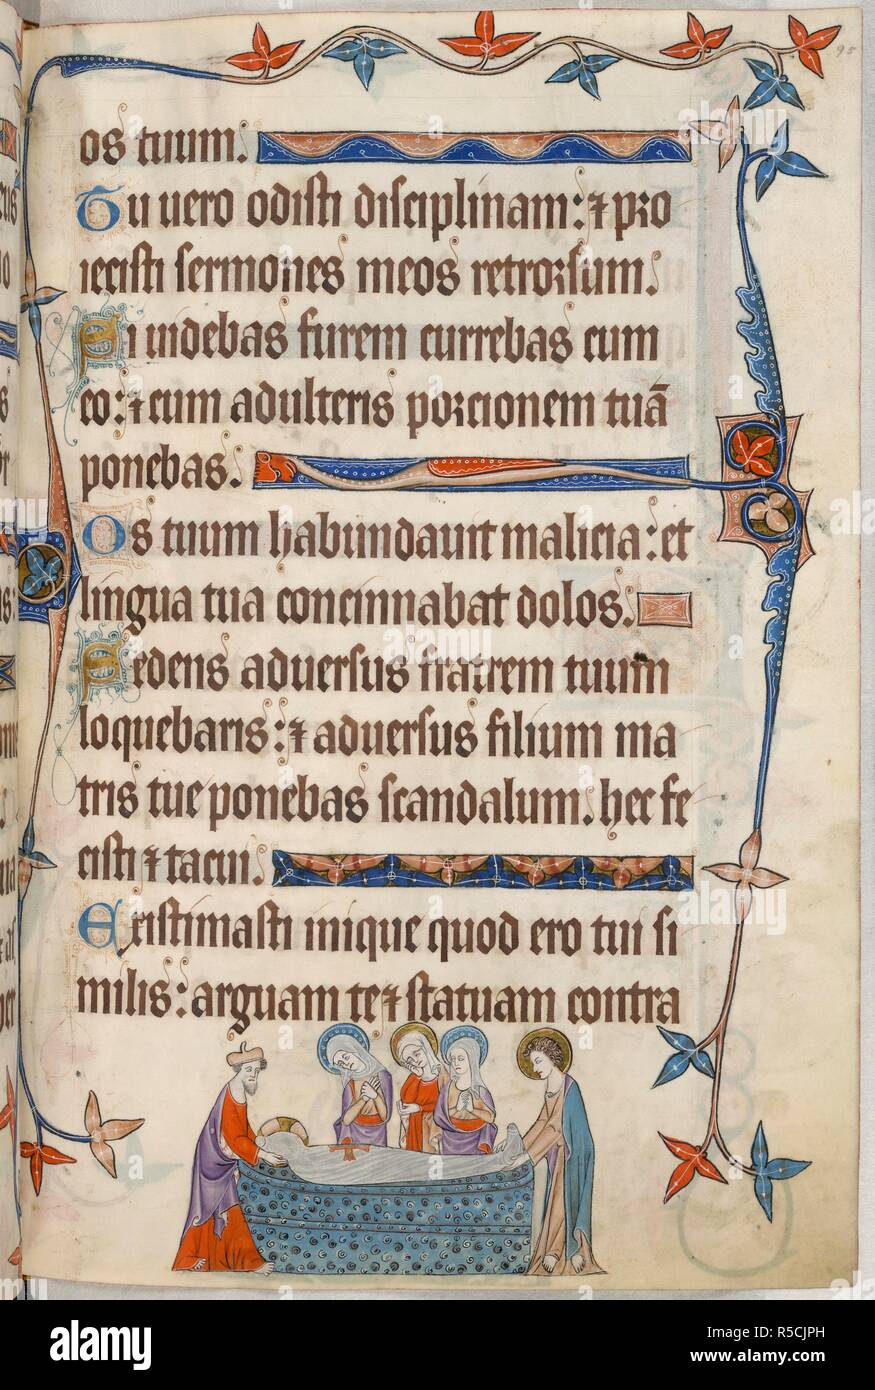 95
os tuum.
Tu uero odisti disciplinam: ⁊ pro
iecisti sermones meos retrorsum.
Si uidebas furem currebas cum
eo: ⁊ cum adulteris porcionem tuā
ponebas.
Os tuum habundauit malicia: et
lingua tua concinnabat dolos.
Sedens aduersus fratrem tuum
loquebaris: ⁊ aduersus filium ma
tris tue ponebas scandalum. hec fe
cisti ⁊ tacui.
Existimasti inique quod ero tui si
milis: arguam te ⁊ statuam contra
alamy
Image ID: R5CJPH
www.alamy.com